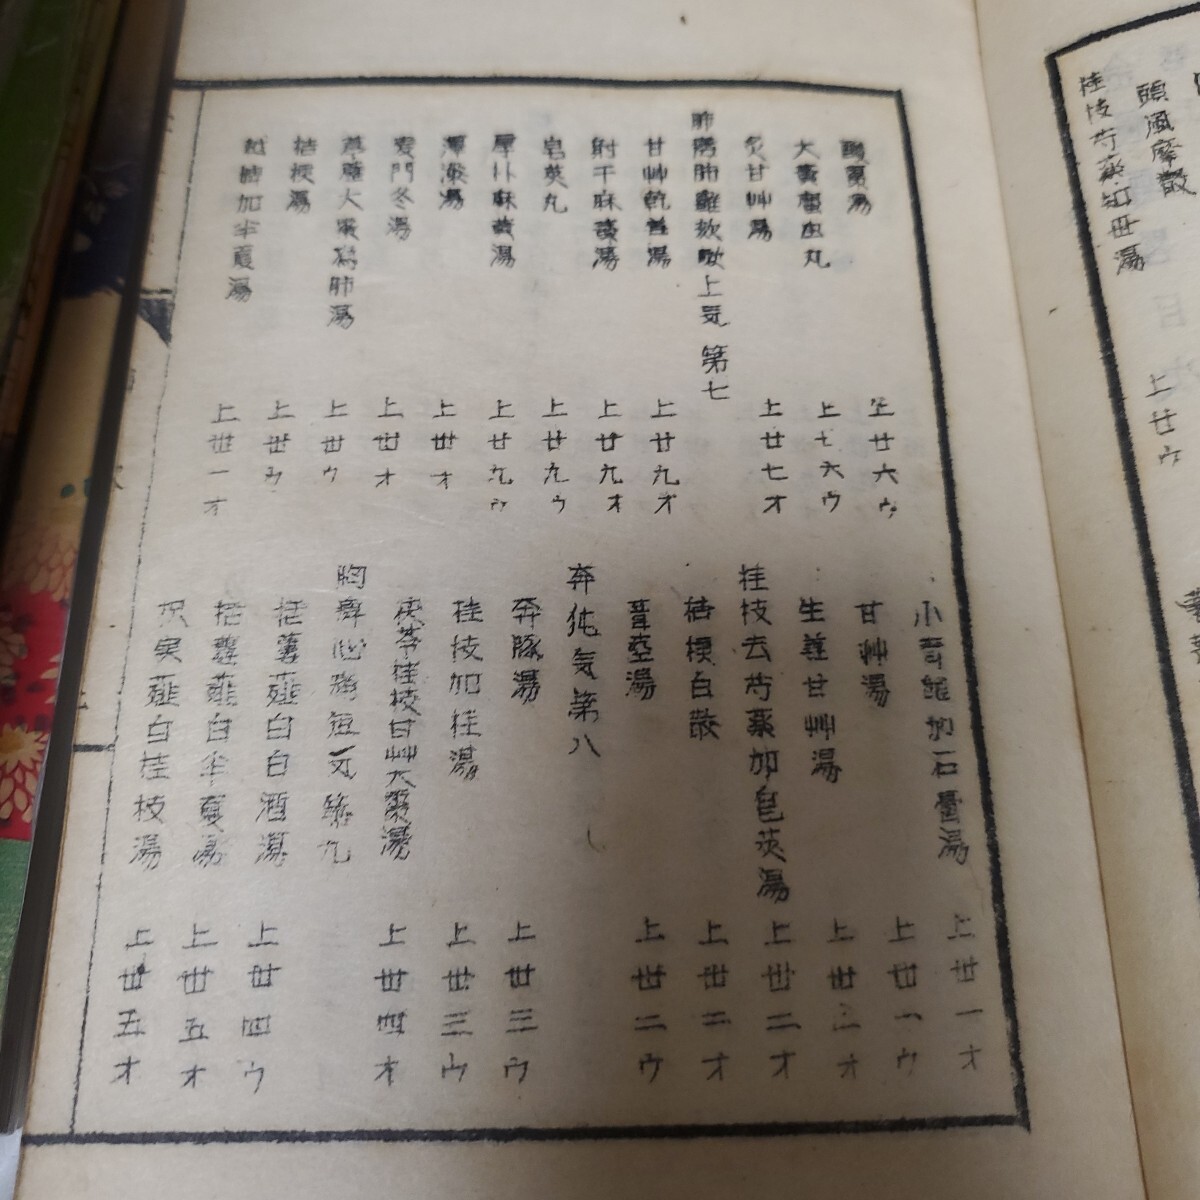 頭風摩散
桂枝芍薬知母湯 上廿ウ
酸棗湯 上廿六ウ
大黄䗪虫丸 上廿六ウ
炙甘艸湯 上廿七オ
肺痿肺癰欬嗽上気 第七
甘艸乾姜湯 上廿九オ
射干麻黄湯 上廿九オ
皂莢丸 上廿九ウ
厚朴麻黄湯 上廿九ウ
澤漆湯 上丗オ
麦門冬湯 上丗オ
葶藶大棗瀉肺湯 上丗ウ
桔梗湯 上丗ウ
越婢加半夏湯 上丗一オ
小青龍加石膏湯 上丗一オ
甘艸湯 上丗一ウ
生姜甘艸湯 上丗二オ
桂枝去芍薬加皂莢湯 上丗二オ
桔梗白散 上丗二オ
葦茎湯 上丗二ウ
奔㹠気第八
奔豚湯 上丗三ウ
桂枝加桂湯 上丗三ウ
茯苓桂枝甘艸大棗湯 上丗四オ
胸痺心痛短気第九
栝蔞薤白白酒湯 上丗四ウ
栝蔞薤白半夏湯 上丗五オ
枳実薤白桂枝湯 上丗五オ